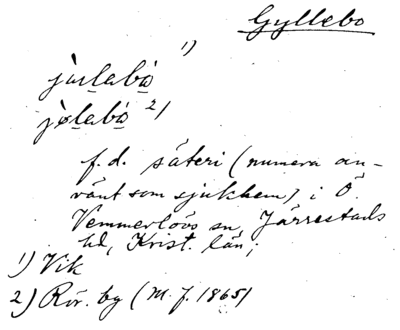 Gyllebo
jùslabò 1)
jòlabò 2)
f.d. säteri (numera an-
vänt som sjukhem) i Ö.
Vemmerlövs sn, Järrestads
hd, Krist. län;
1) Vik
2) Rör. by (M. f. 1865)